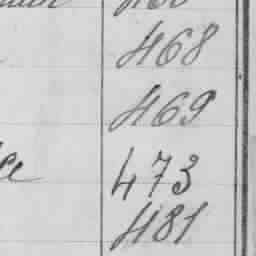 468
469
473
481